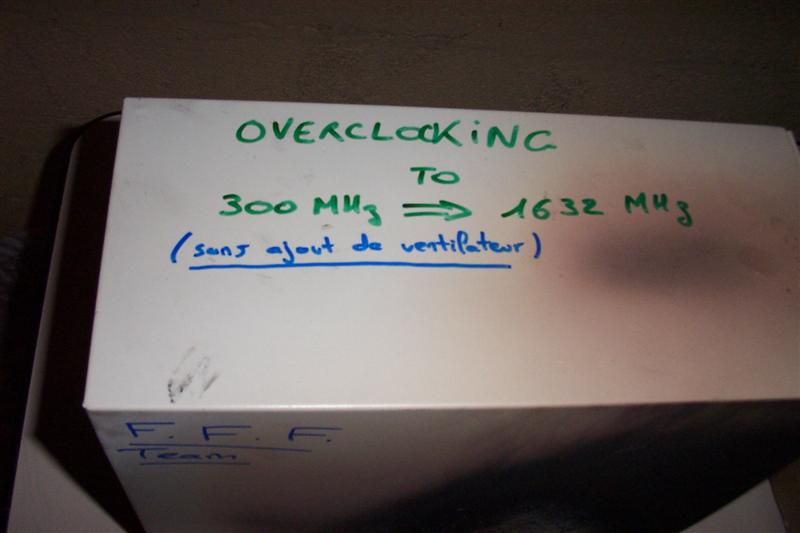 OVERCLOCKING
TO
300 MHz ⇒ 1632 MHz
(sans ajout de ventilateur)
F. F. F.
Team